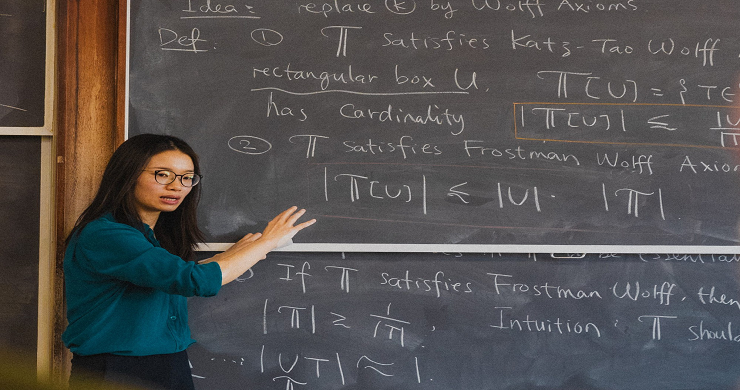 Idea: replace Ⓚ by Wolff Axioms.
Def. ① 𝕋 satisfies Katz-Tao Wolff
rectangular box U. 𝕋[U] = { T ∈
has Cardinality |𝕋[U]| ≲ |U|
② 𝕋 satisfies Frostman Wolff Axiom
|𝕋[U]| ≲ |U|· |𝕋|.
If 𝕋 satisfies Frostman Wolff, then
|𝕋| ≳ 1/|T|, Intuition: 𝕋 should
|∪_𝕋 T| ≈ 1.